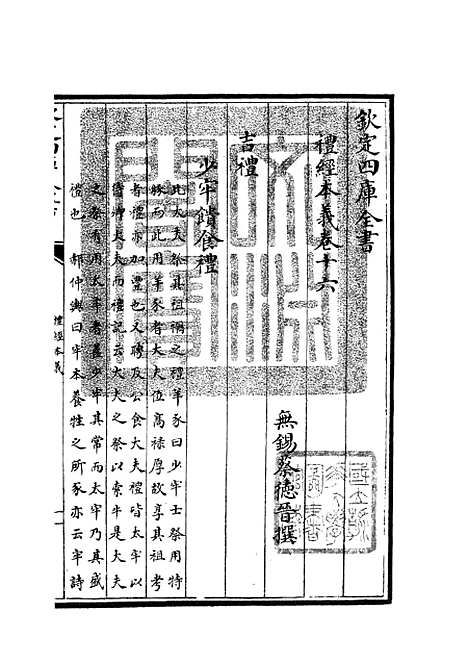 欽定四庫全書
禮經本義卷十六
無錫蔡德晉撰
吉禮
少牢饋食禮
此大夫祭其祖禰之禮羊豕曰少牢士祭用特
豚而此用羊豕者大夫位高禄厚故享其祖考
者禮亦加豐也又聘及公食大夫禮皆太牢以
賔增大夫而禮記云大夫之祭以索牛是大夫
之祭有用太牢者蓋少牢其常而太牢乃其盛
禮也 郝仲輿曰牢本養牲之所豕亦云牢詩
禮經本義